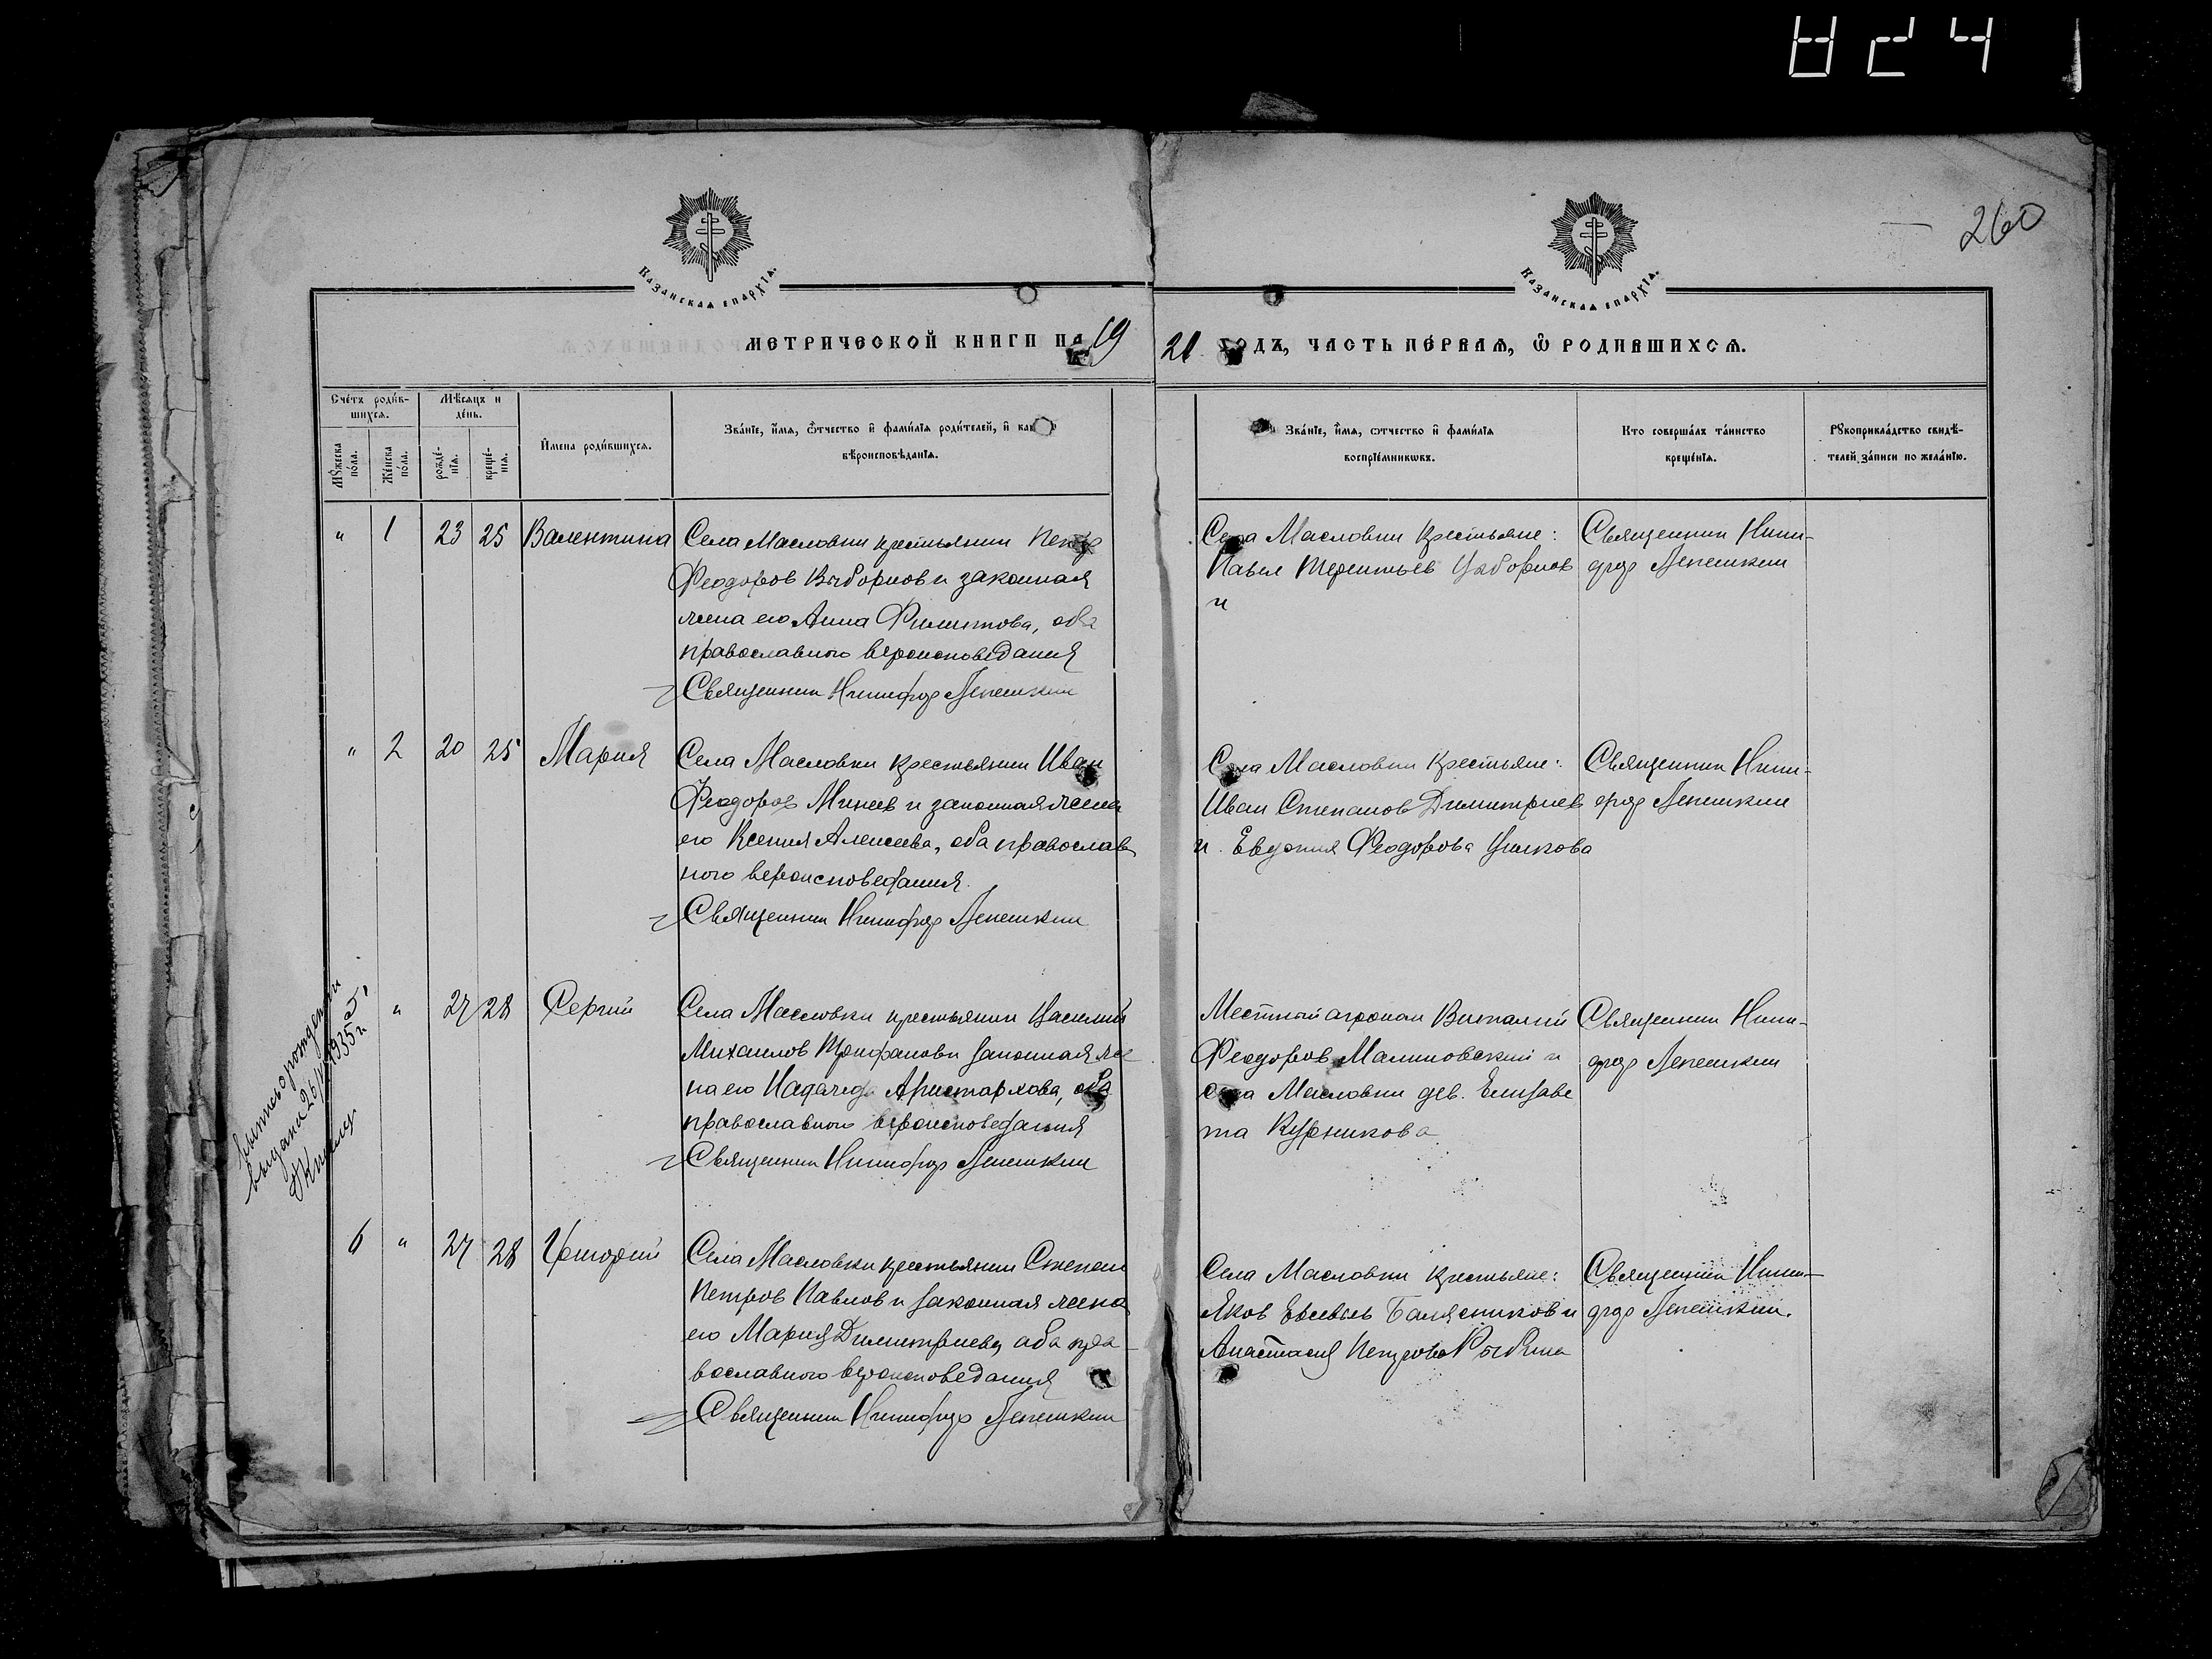 824
260
Казанская епархїѧ.
Казанская епархїѧ.
МЕТРИЧЕСКОЙ КНИГИ НА 19
21 ГОДЪ, ЧАСТЬ ПЕ́РВАѦ, Ѽ РОДИВШИХСѦ.
Сче́тъ роди́в-
шихсѧ.
Мѣ́сѧцъ и
де́нь.
Мꙋ́жеска
по́ла.
Же́нска
по́ла.
рожде́-
нїѧ.
креще́-
нїѧ.
И҆мена роди́вшихсѧ.
Зва́нїе, и҆́мѧ, ѻ҆́тчество и҆ фами́лїѧ роди́телей, и҆
вѣроисповѣ́данїѧ.
Зва́нїе, и҆́мѧ, ѻтчество и҆ фами́лїѧ
воспрїе́мникѡвъ.
Кто соверша́лъ та́инство
креще́нїѧ.
Рꙋкоприкла́дство свидѣ́-
телей за́писи по жела́нїю.
" 1 23 25 Валентина
Села Масловки крестьянин Петр
Феодоров Выборнов и законная
жена его Анна Филиппова, оба
православного вероисповедания
Священник Никифор Лепешкин
Села Масловки Крестьяне:
Павел Терентьев Выборнов
и
Священник Ники-
фор Лепешкин
" 2 20 25 Мария
Села Масловки крестьянин Иван
Феодоров Минеев и законная жена
его Ксения Алексеева, оба православ
ного вероисповедания.
Священник Никифор Лепешкин
Села Масловки Крестьяне:
Иван Степанов Димитриев
и Евдокия Феодорова
Священник Ники-
фор Лепешкин
выпись о рождении
выдана 26/ 1935 г.
5 " 27 28 Сергий
Села Масловки крестьянин Василий
Михаилов Трифанов и законная же
на его Надежда Аристархова, оба
православного вероисповедания
Священник Никифор Лепешкин
Местный агроном Виталий
Феодоров Малиновский и
села Масловки дев. Елизаве
та Курникова
Священник Ники-
фор Лепешкин
6 " 27 28 Григорий
Села Масловки крестьянин Степан
Петров Павлов и законная жена
его Мария Димитриева, оба пра-
вославного вероисповедания
Священник Никифор Лепешкин
Села Масловки крестьяне:
Яков Евсевьев Балясников и
Анастасия Петрова
Священник Ники-
фор Лепешкин.